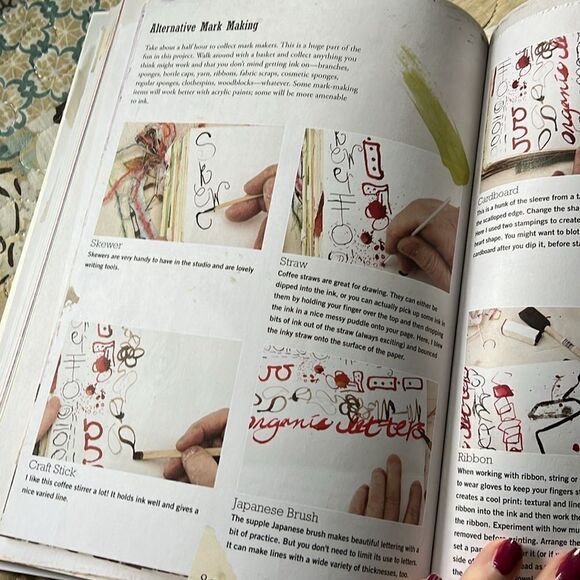 Alternative Mark Making
Take about a half hour to collect mark makers. This is a huge part of the
fun in this project. Walk around with a basket and collect anything you
think might work and that you don't mind getting ink on—branches,
sponges, bottle caps, yarn, ribbons, fabric scraps, cosmetic sponges,
regular sponges, clothespins, woodblocks—whatever. Some mark-making
items will work better with acrylic paints; some will be more amenable
to ink.
Skewer
Skewers are very handy to have in the studio and are lovely
writing tools.
Straw
Coffee straws are great for drawing. They can either be
dipped into the ink, or you can actually pick up some ink in
them by holding your finger over the top and then dropping
the ink in a nice messy puddle onto your page. Here, I blew
bits of ink out of the straw (always exciting) and bounced
the inky straw onto the surface of the paper.
Craft Stick
I like this coffee stirrer a lot! It holds ink well and gives a
nice varied line.
organic letters
Japanese Brush
The supple Japanese brush makes beautiful lettering with a
bit of practice. But you don't need to limit its use to letters.
It can make lines with a wide variety of thicknesses, too.
organic
Cardboard
This is a hunk of the sleeve from a
the scalloped edge. Change the sha
Here I used two stampings to create
heart shape. You might want to blot
cardboard after you dip it, before st
Ribbon
When working with ribbon, string or
to wear gloves to keep your fingers
creates a cool print: textural and line
ribbon into the ink and then work the
the ribbon. Experiment with how mu
removed before printing. Arrange the
set a pa
side of